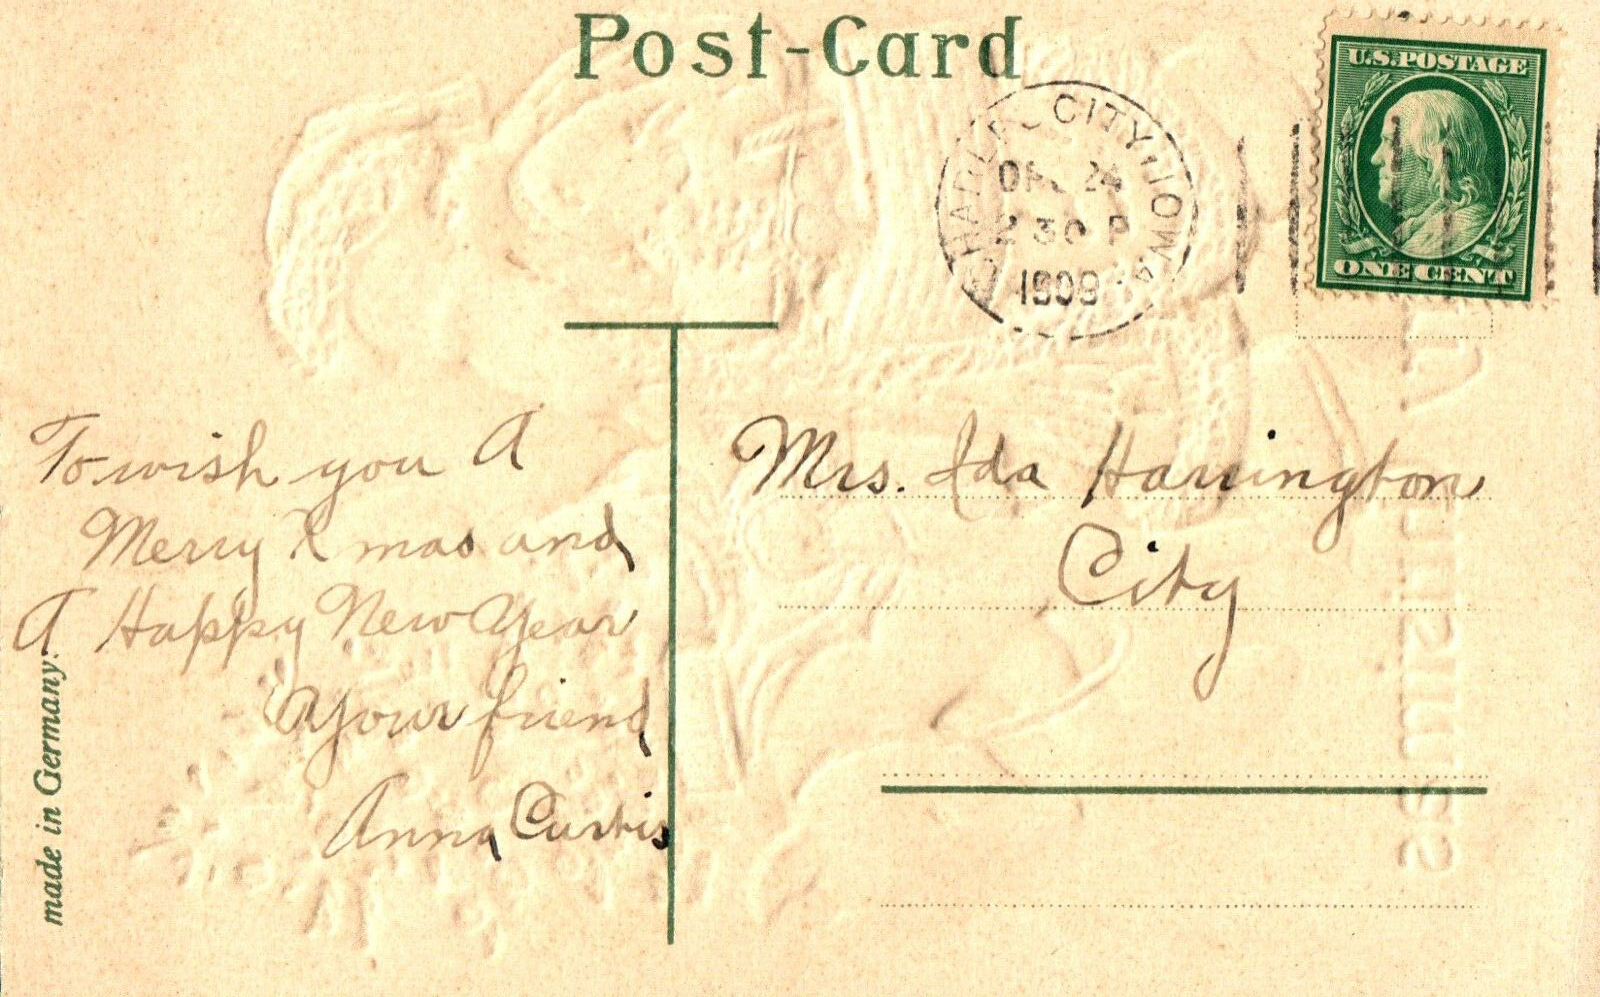 Post-Card
U.S. POSTAGE
ONE CENT
CHARLES CITY, IOWA
DEC 24
2 30 P
1909
To wish you A
Merry Xmas and
A Happy New Year
Your friend
Anna Curtis
Mrs. Ida Harrington
City
made in Germany.